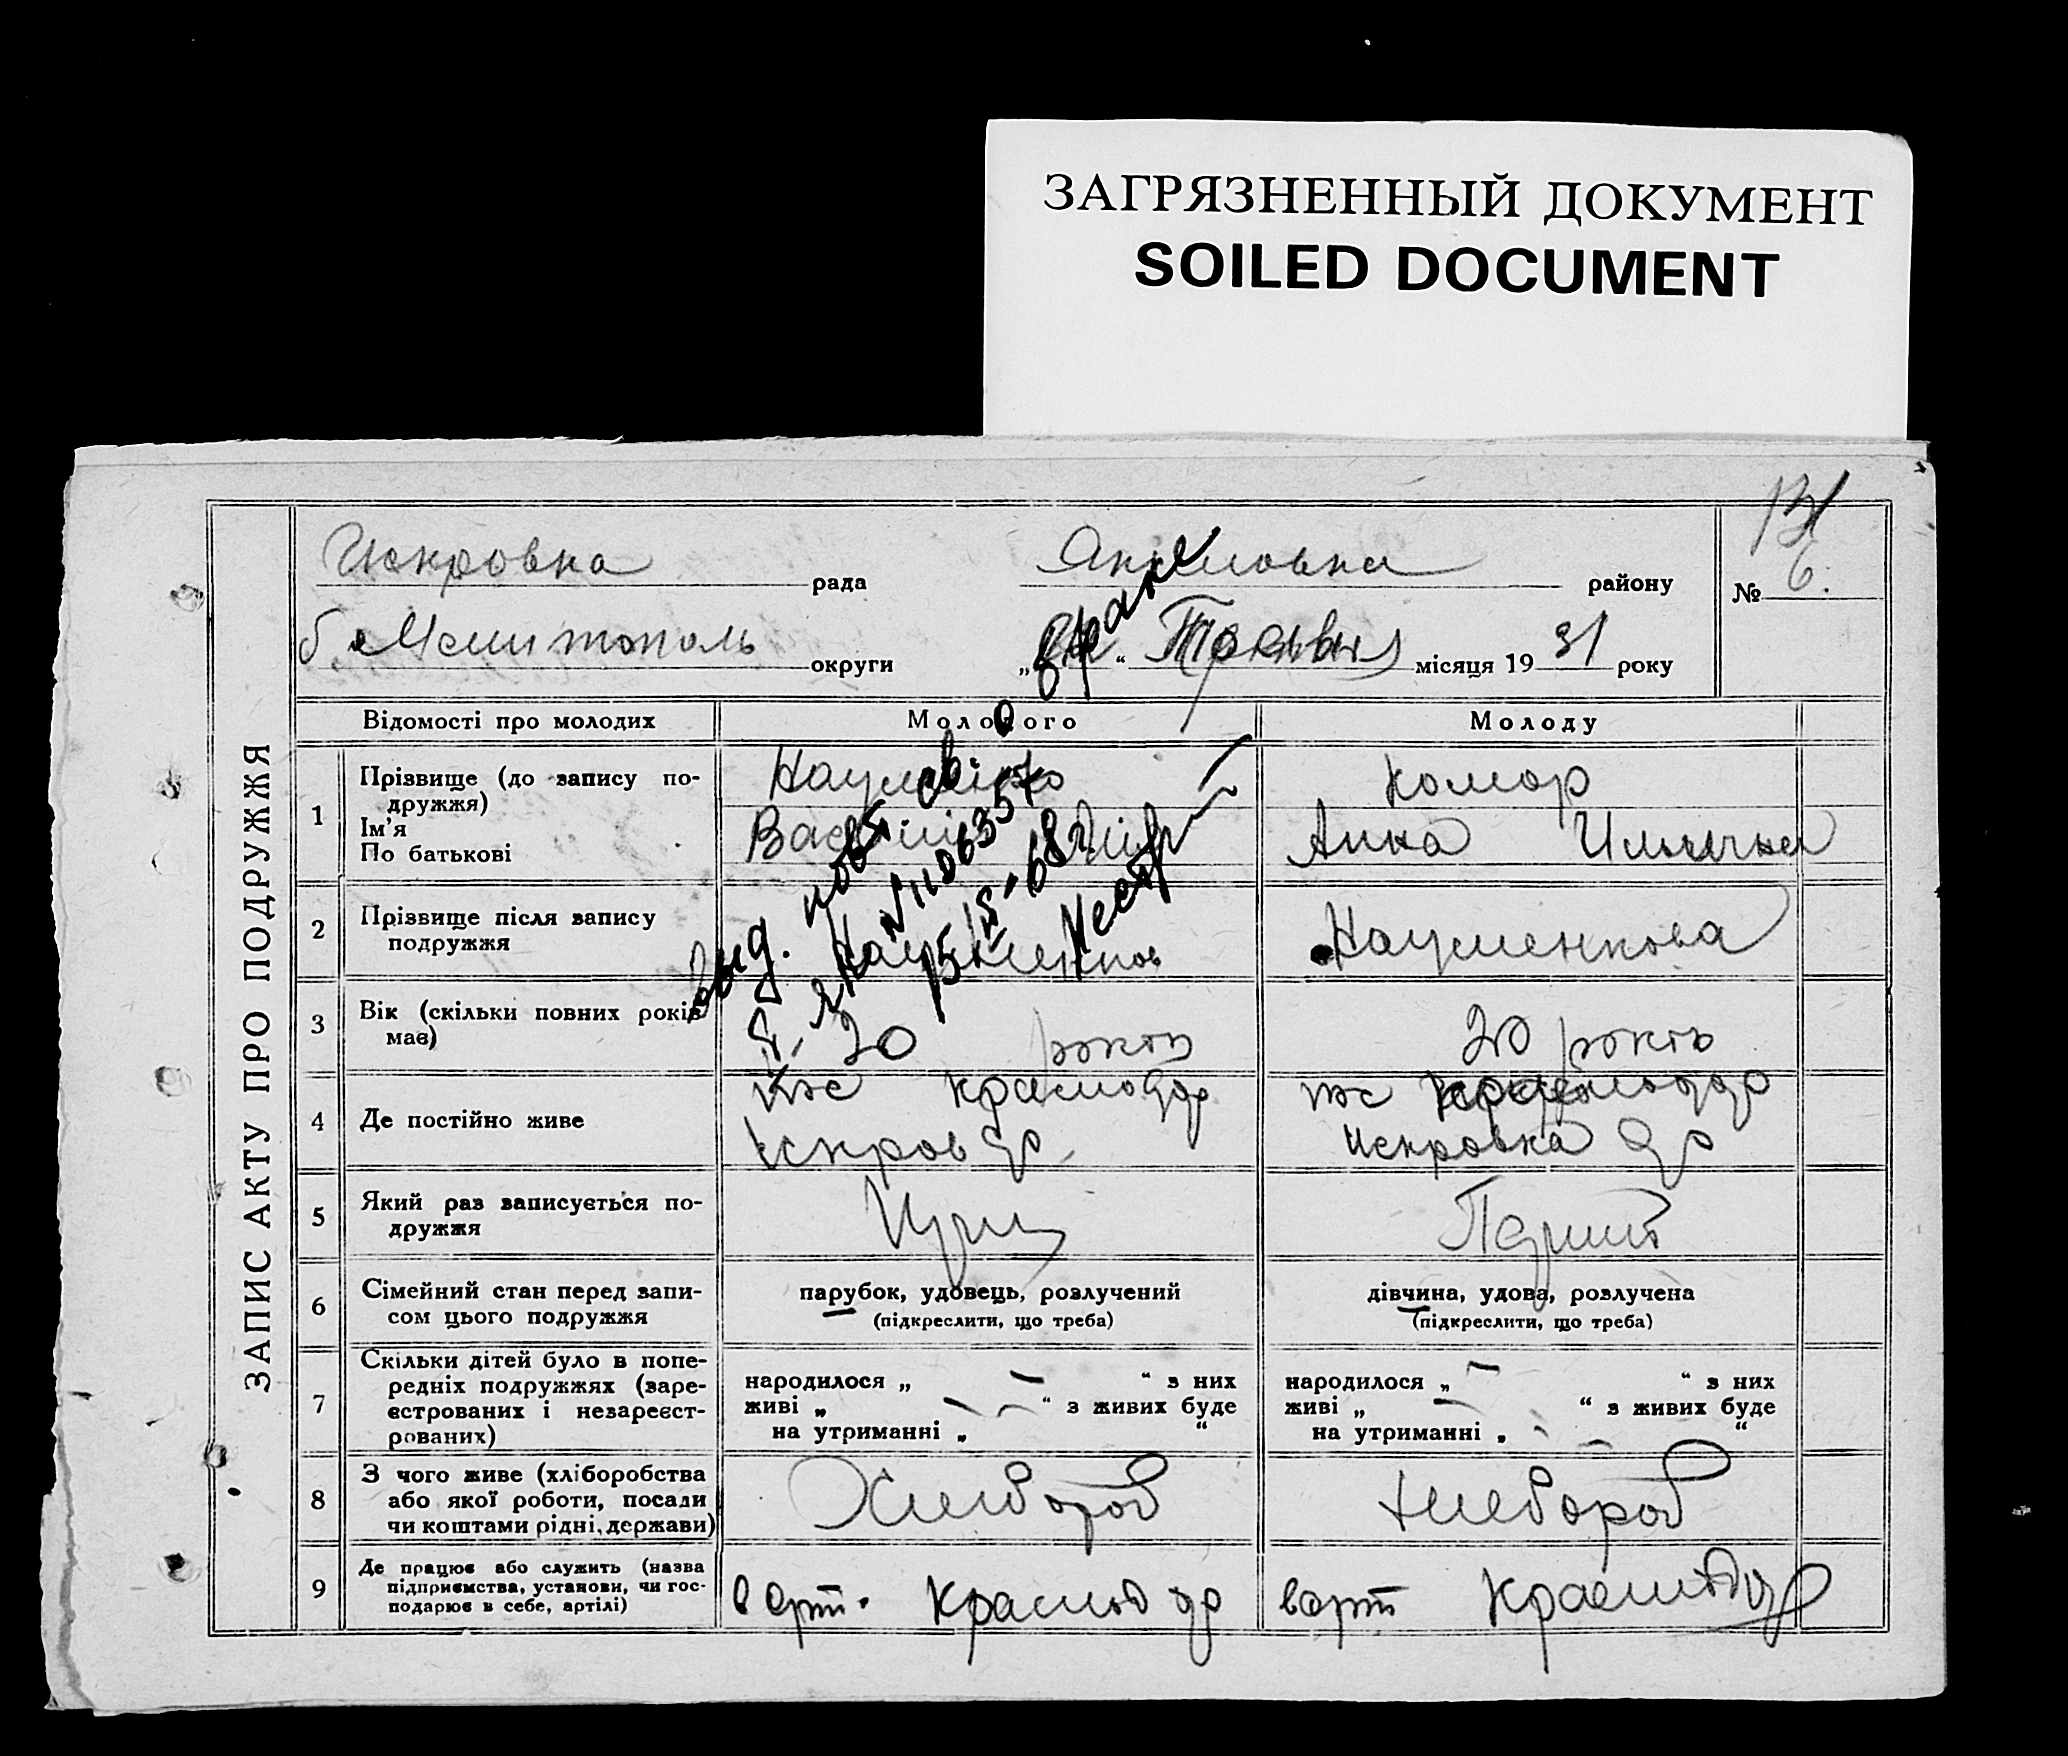 ЗАГРЯЗНЕННЫЙ ДОКУМЕНТ
SOILED DOCUMENT
ЗАПИС АКТУ ПРО ПОДРУЖЖЯ
131
Искровка рада Якимовка району № 6.
б. Мелитополь округи „ “ Травня місяця 19 31 року
Відомості про молодих Молодого Молоду
1 Прізвище (до запису по-
дружжя)
Ім'я
По батькові
Науменко
Василий
Комар
Анна Ильична
2 Прізвище після запису
подружжя
Науменков
Науменкова
3 Вік (скільки повних років
має)
20 
20 
выд. повт. св. о браке
№ 1106357
15/V-68 г.
4 Де постійно живе
Искров
Искровка
5 Який раз записується по-
дружжя
6 Сімейний стан перед запи-
сом цього подружжя
парубок, удовець, розлучений
(підкреслити, що треба)
дівчина, удова, розлучена
(підкреслити, що треба)
7 Скільки дітей було в попе-
редніх подружжях (заре-
єстрованих і незареєст-
рованих)
народилося „ — “ з них
живі „ — “ з живих буде
на утриманні „ — “
народилося „ — “ з них
живі „ — “ з живих буде
на утриманні „ — “
8 З чого живе (хліборобства
або якої роботи, посади
чи коштами рідні, держави)
Хлебороб
Хлебороб
9 Де працює або служить (назва
підприємства, установи, чи гос-
подарює в себе, артілі)
в арт.
в арт